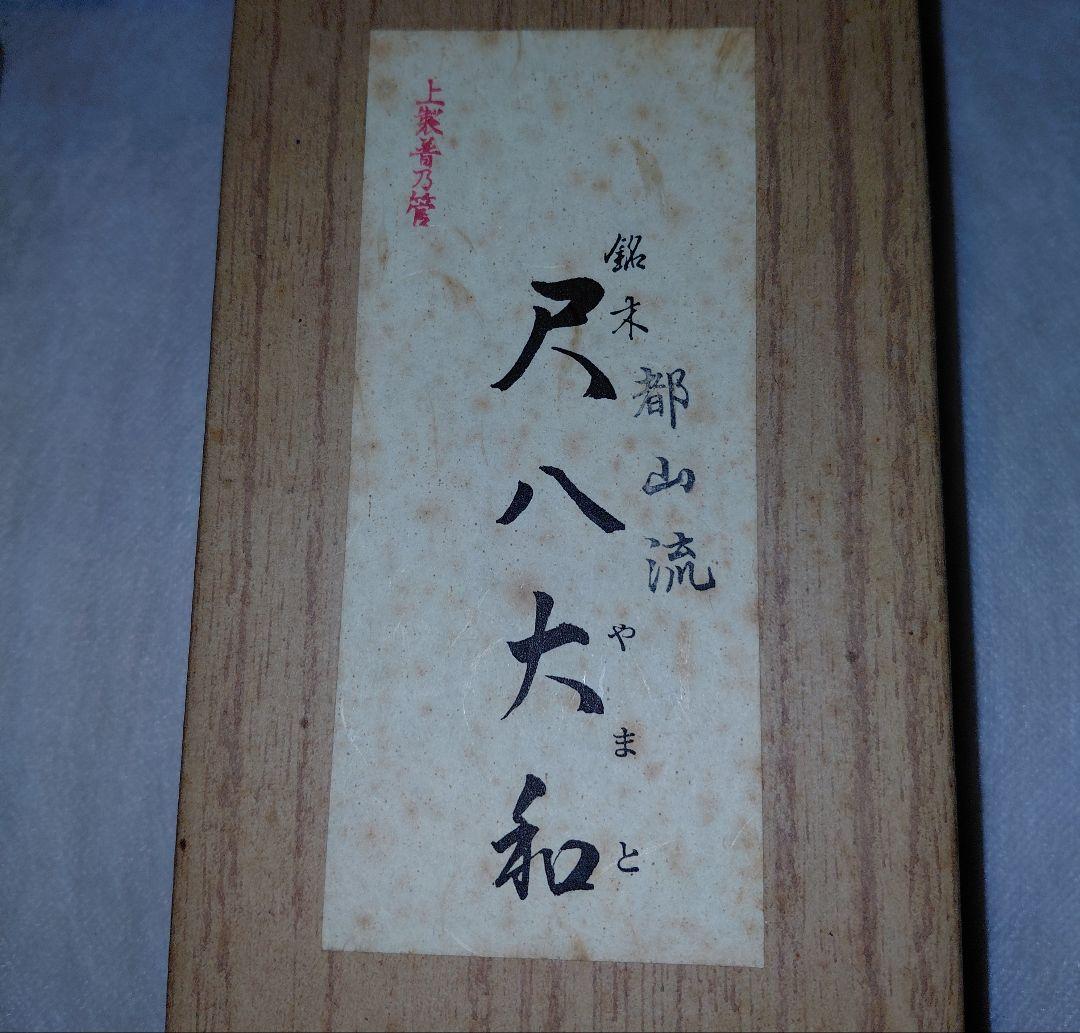 銘木
都山流
尺八大和
やまと
上製普乃管